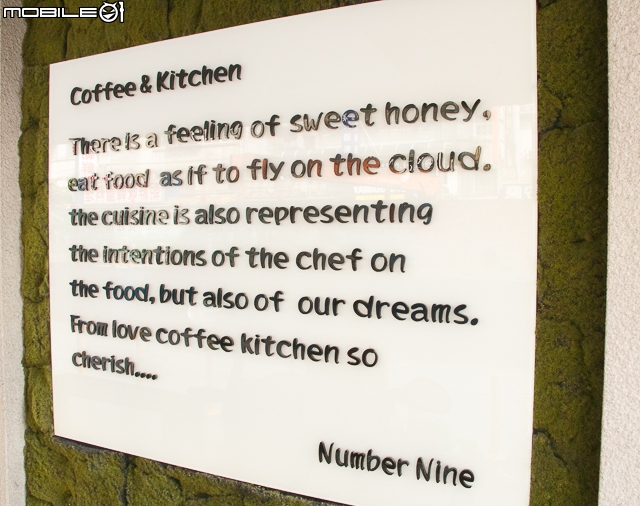 MOBILE01
Coffee & Kitchen
There is a feeling of sweet honey,
eat food as if to fly on the cloud.
the cuisine is also representing
the intentions of the chef on
the food, but also of our dreams.
From love coffee kitchen so
cherish....
Number Nine